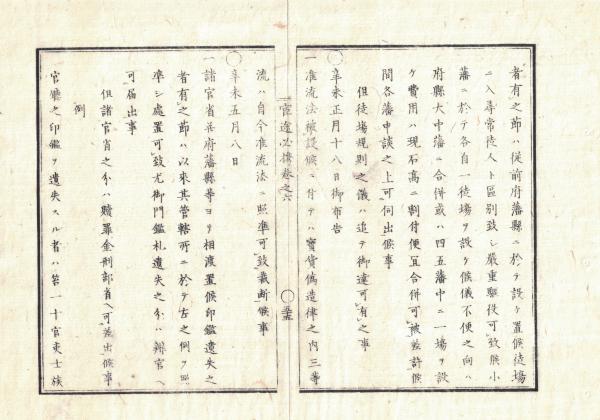 者有之節ハ従前府藩縣ニ於テ設ケ置候徒場
ニ入尋常徒人ト區別致シ嚴重驅役可致候小
藩ニ於テ各自一徒場ヲ設ケ候儀不便之向ハ
府縣大中藩ニ合併或ハ四五藩中ニ一場ヲ設
ケ費用ハ現石高ニ割付便宜合併可被差許候
間各藩申談之上可伺出候事
但徒場規則之儀ハ追テ御達可有之事
○辛未正月十八日御布告
一准流法被設候ニ付テハ寶貨偽造律之内三等
官途必携巻之六
○
流ハ自今准流法ニ照準可致裁断候事
○辛未五月八日
一諸官省并府藩縣等ヨリ相渡置候印鑑遺失之
者有之節ハ以来其管轄所ニ於テ左之例ヲ照
準シ處置可致尤御門鑑札遺失之分ハ辨官ヘ
可届出事
但諸官省之分ハ贖罪金刑部省ヘ可差出候事
例
官廳之印鑑ヲ遺失スル者ハ第一十官吏士族